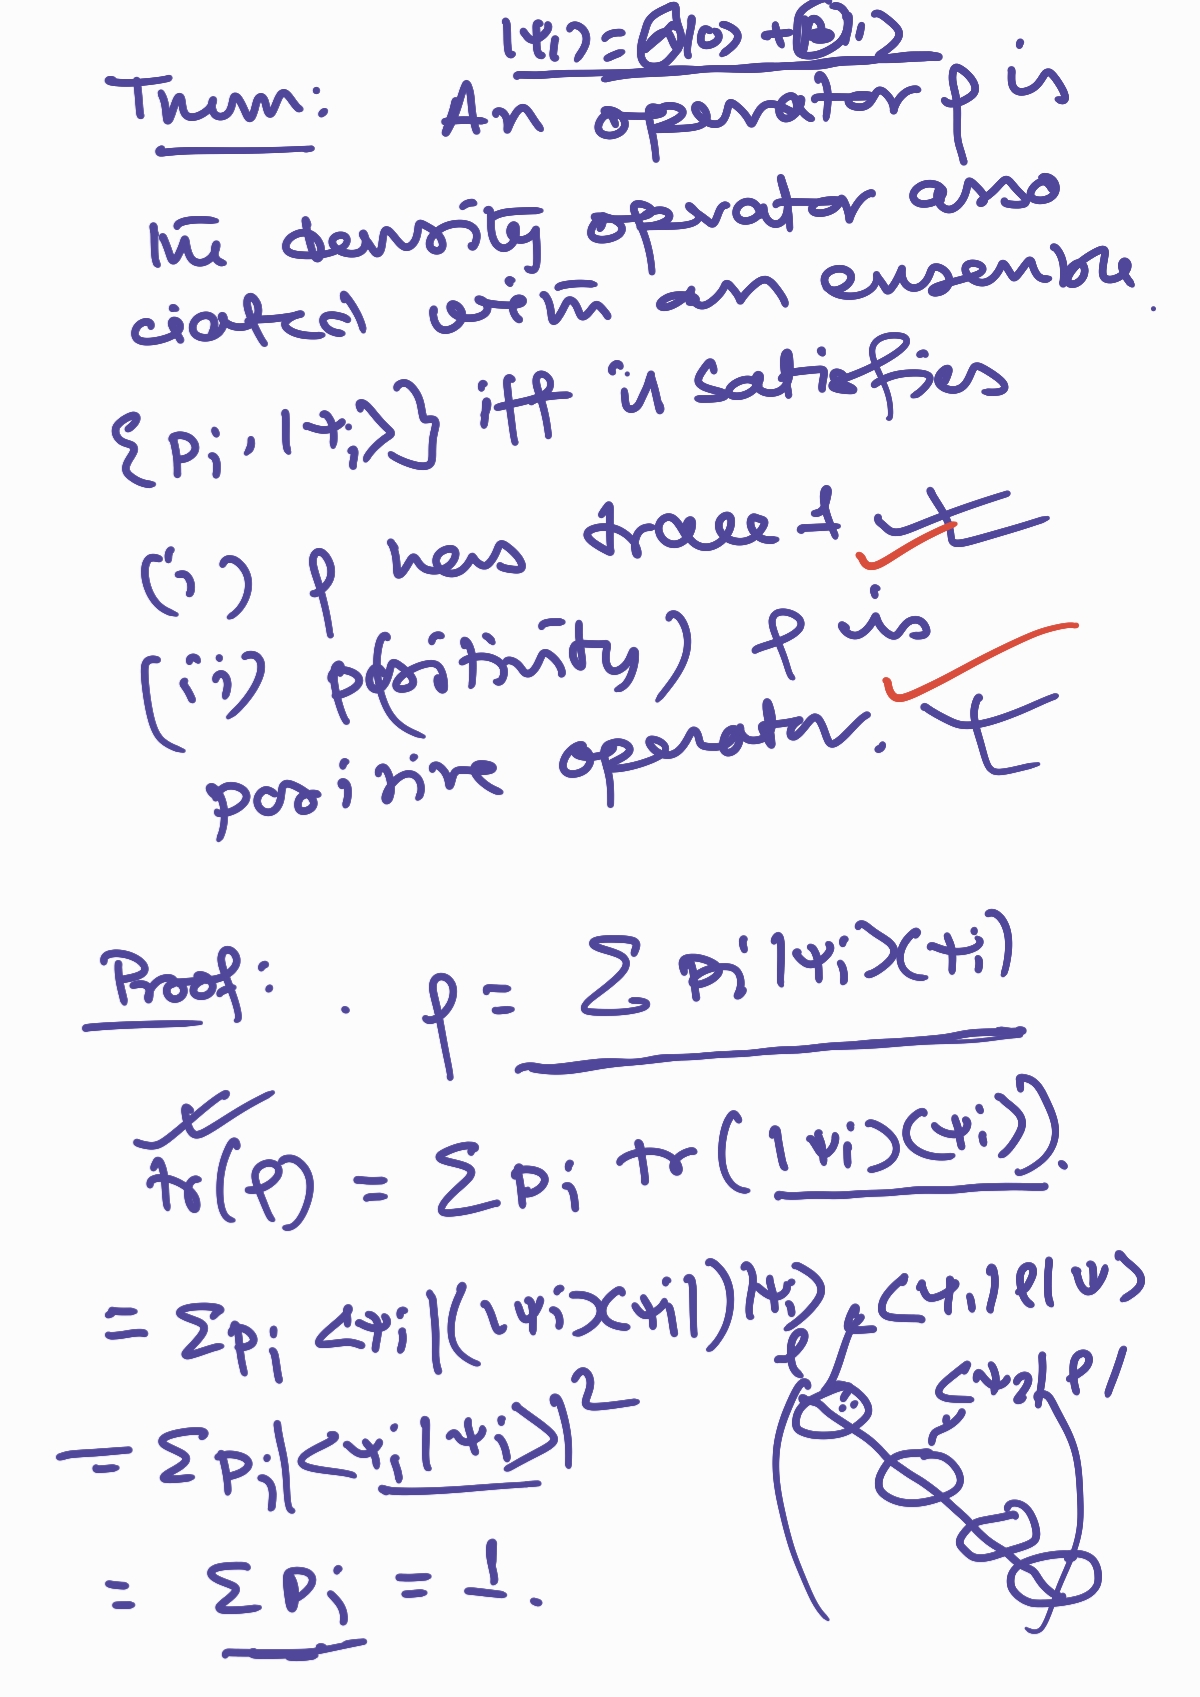 |ψ₁⟩ = α|0⟩ + β|1⟩
Thum: An operator ρ is
the density operator asso
ciated with an ensemble
{pᵢ, |ψᵢ⟩} iff it satisfies
(i) ρ has trace 1
(ii) p(ositivity) ρ is
positive operator.
Proof: . ρ = Σ pᵢ |ψᵢ⟩⟨ψᵢ|
tr(ρ) = Σ pᵢ tr(|ψᵢ⟩⟨ψᵢ|).
= Σ pᵢ ⟨ψᵢ|(|ψᵢ⟩⟨ψᵢ|)|ψᵢ⟩
⟨ψ₁|ρ|ψ⟩
ρ
⟨ψ₂|ρ|
= Σ pᵢ |⟨ψᵢ|ψᵢ⟩|²
= Σ pᵢ = 1.